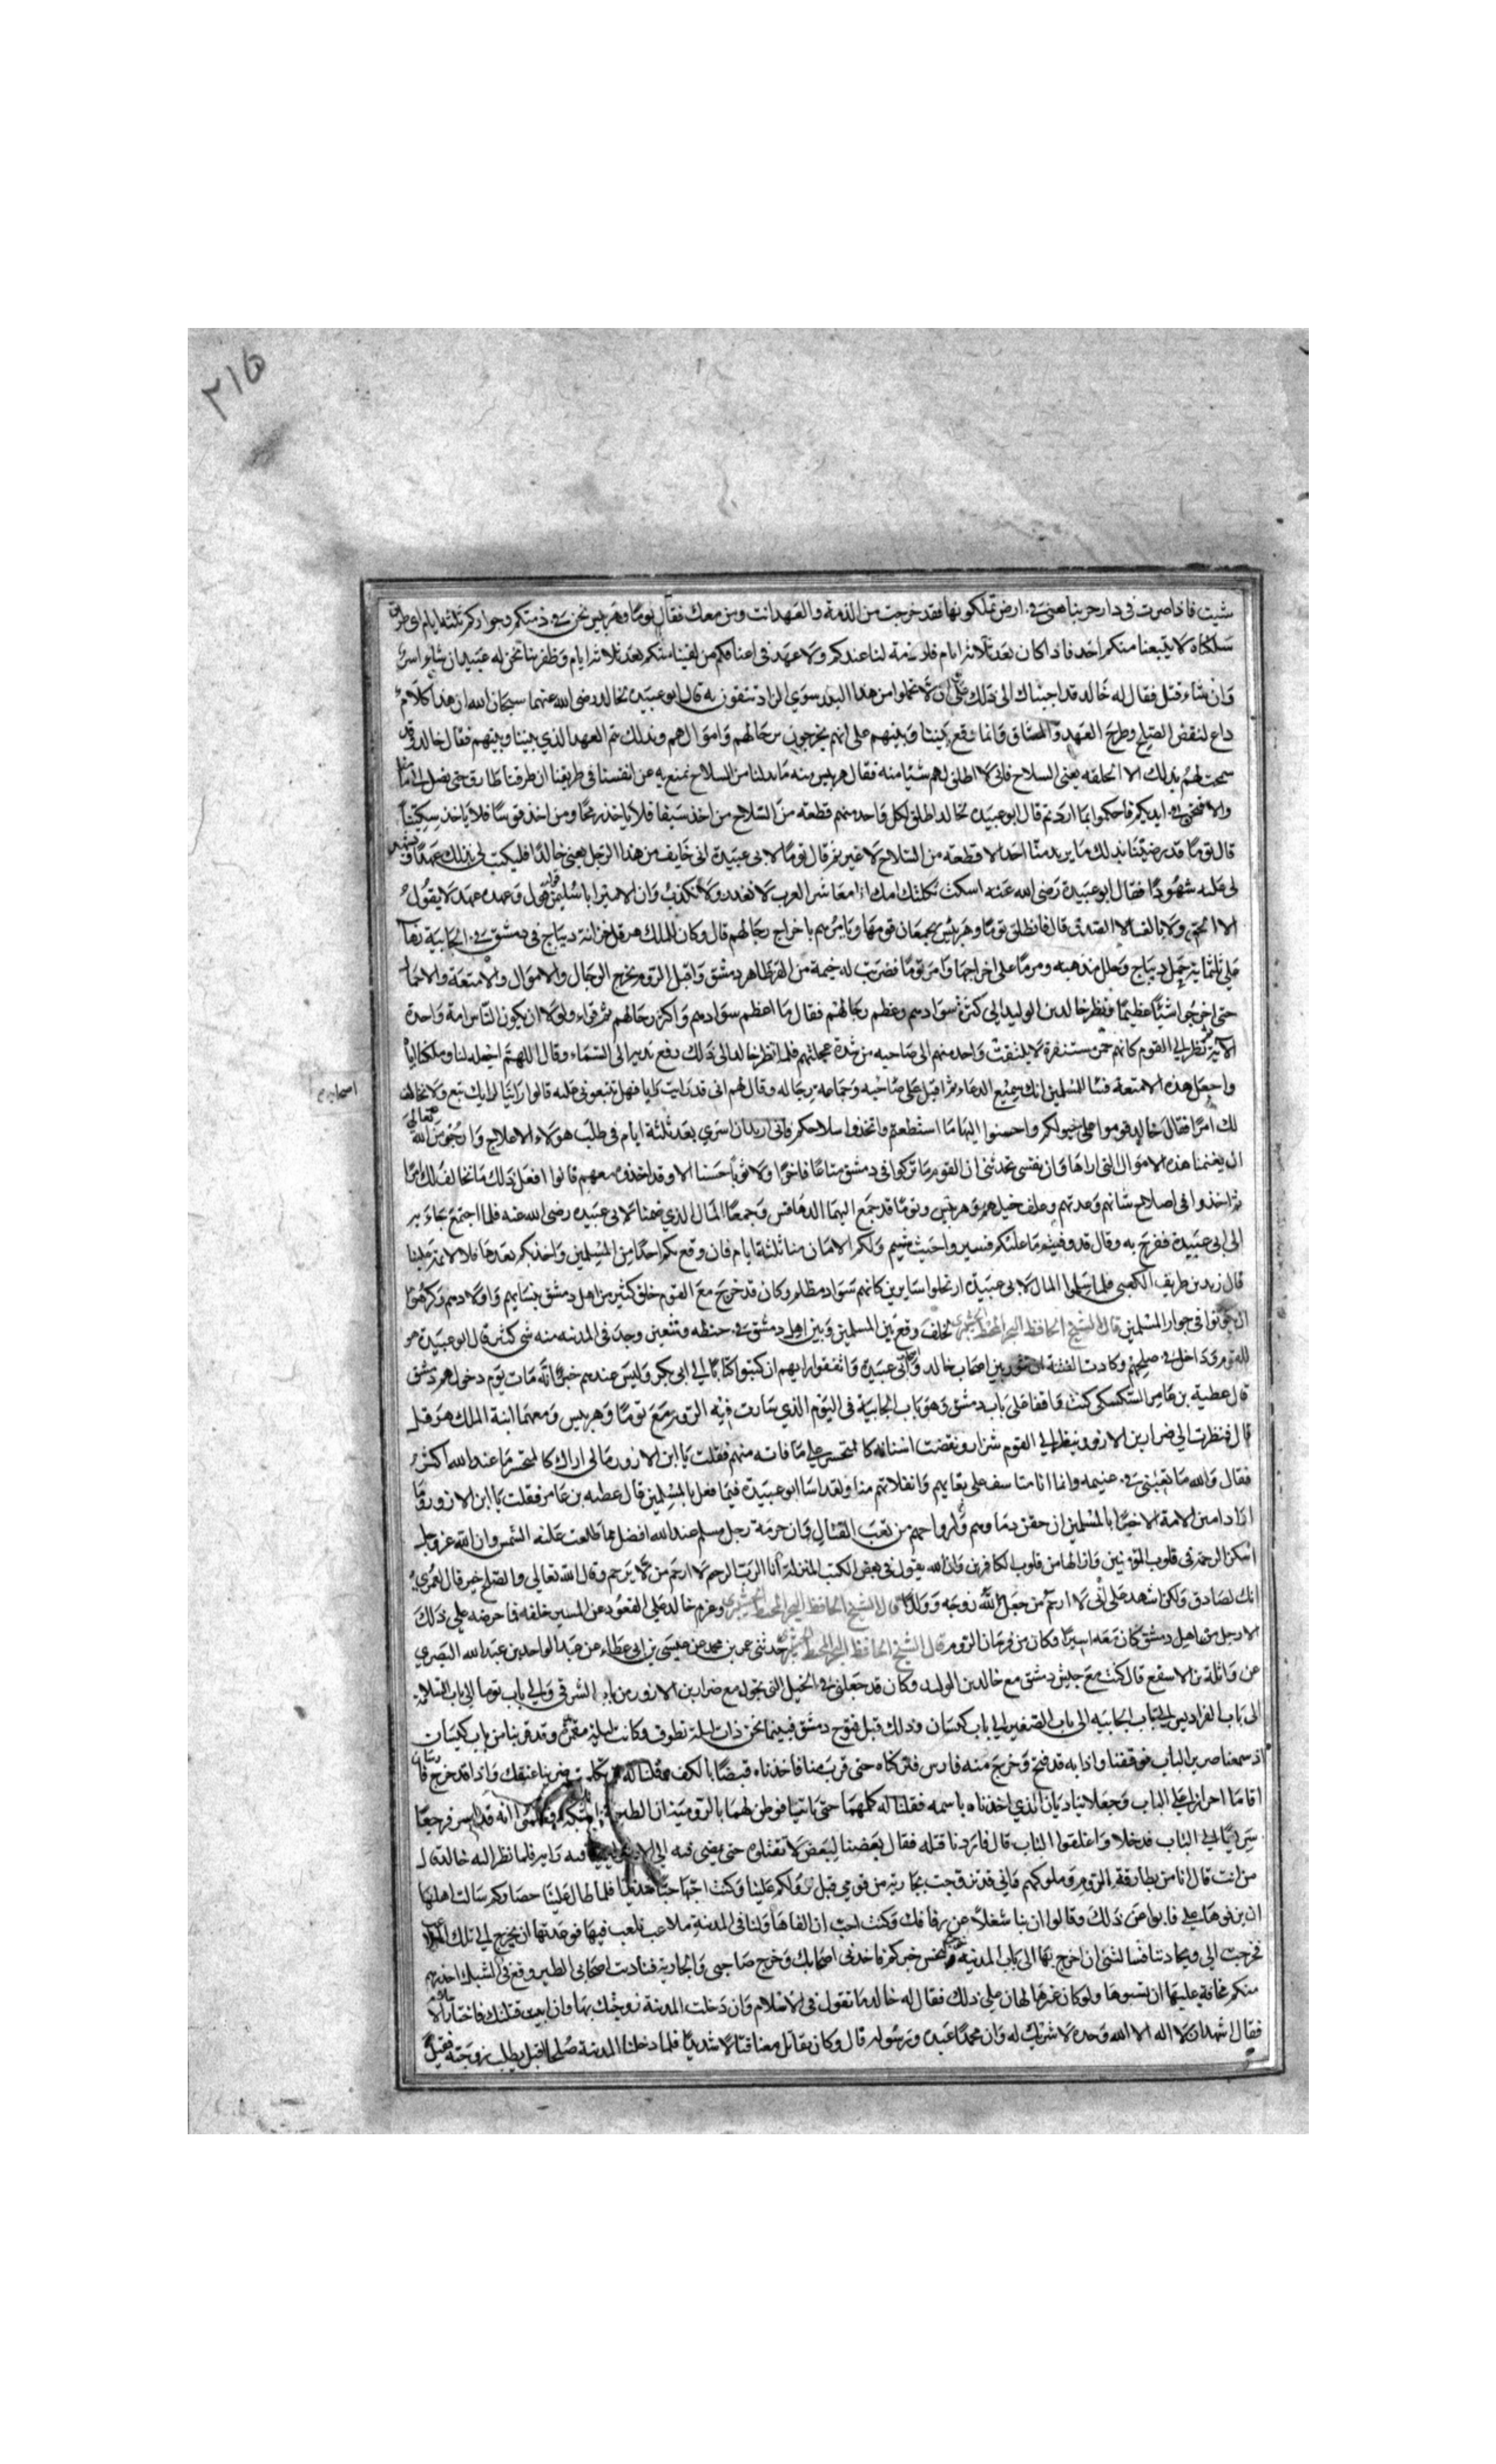 ٢١٥
شيت فاذا صرت في دار حربنا هي في ارض تملكونها فقد خرجت من الذمة والعهد انت ومن معك فقال توما وهربيس نحن في ذمتكم وجواركم ثلثة ايام اي طريق
سلكناه لا يتبعنا منكم احد فاذا كان بعد ثلاثة ايام فلا ذمة لنا عندكم ولا عهد في اعناقكم من لقينا منكم بعد ثلاثة ايام وظفر بنا نحن له عبيد ان شاء اسر
وان شاء قتل فقال له خالد قد اجبناك الى ذلك على ان لا تحملوا من هذا البلد سوي الزاد تتقون به قال ابو عبيدة لخالد رضى الله عنهما سبحان الله ان هذا كلام
داع لنقض الصلح وطرح العهد والميثاق وانما نقع بيننا وبينهم على انهم يخرجون برحالهم واموالهم وبذلك تم العهد الذي بيننا وبينهم فقال خالد وقد
سمحت لهم بذلك الا الحلقه يعني السلاح فاني لا اطلق لهم شيئا منه فقال هربيس منه ما بد لنا من السلاح نمنع به عن انفسنا في طريقنا ان طرقنا طارق حتى نصل الى
والا فنحن في ايديكم فاحكموا بما اردتم قال ابو عبيدة لخالد اطلق لكل واحد منهم قطعة من السلاح من اخذ سيفا فلا ياخذ رمحا ومن اخذ قوسا فلا ياخذ سكينا
قال توما قد رضينا بذلك ما يريد منا احد الا قطعة من السلاح لا غير ثم قال توما لابي عبيدة اني خايف من هذا الرجل يعني خالدا فليكتب لي بذلك عهدا ويشهد
لي عليه شهودا فقال ابو عبيدة رضي الله عنه اسكت ثكلتك امك انا معاشر العرب لا نغدر ولا نكذب وان الامير ابا سليمن قوله قول وعهده عهد لا يقول
الا الحق ولا يالف الا الصدق قال فانطلق توما وهربيس يجمعان قومهما ويامرهم باخراج رحالهم قال وكان للملك هرقل خزانة ديباج في دمشق في الجابية
ثلثماية حمل ديباج وحلل مذهبه ومر ما على اخراجها وامر توما فضربت له خيمة من القز ظاهر دمشق واقبل الروم يخرج الرحال والاموال والامتعة والاحمال
حتى اخرجوا شيئا عظيما فنظر خالد بن الوليد الى كثرة سوادهم وعظم رحالهم فقال ما اعظم سوادهم واكثر رحالهم ثم قراء ولولا ان يكون الناس امة واحدة
الآية ثم نظر الى القوم كانهم حمر مستنفرة لا يلتفت واحد منهم الى صاحبه من شدة عجلتهم فلما نظر خالد الى ذلك رفع يديه الى السماء وقال اللهم اجعله لنا وملكنا اياه
واجعل هذه الامتعة فيئا للمسلمين انك سميع الدعاء ثم اقبل على صاحبه وجماعة رجاله وقال لهم اني قد رايت رايا فهل تتبعوني عليه قالوا راينا لرايك تبع ولا نخالف
اصحابه
لك امرا فقال خالد قوموا على خيولكم واحسنوا اليها ما استطعتم واتخذوا سلاحكم فاني اريد ان اسري بعد ثلثة ايام في طلب هؤلاء الاعلاج وارجو من الله تعالى
ان يغنمنا هذه الاموال التي اراها وان نفسي تحدثني ان القوم ما تركوا في دمشق متاعا فاخرا ولا ثوبا حسنا الا وقد اخذوه معهم قالوا افعل ذلك ما نخالف لك امرا
ثم اخذوا في اصلاح شانهم وعدتهم وعلف خيلهم وهربيس وتوما قد جمع اليهما الدهاقين وجمعا المال الذي ضمنا لابي عبيدة رضى الله عنه فلما اجتمع جاء به
الى ابي عبيدة ففرح به وقال قد وفيتم ما عليكم فسيروا حيث شيتم ولكم الامان منا ثلثة ايام فان وقع بكم احدا من المسلمين واخذكم بعدها فلا لائمة علينا
قال زيد بن طريف الكعبي فلما سلموا المال لابي عبيدة ارتحلوا سايرين كانهم سواد مظلم وكان قد خرج مع القوم خلق كثير من اهل دمشق بنسايهم واولادهم وكرهوا
ان يكونوا في جوار المسلمين قال الشيخ الحافظ البحر المحيط البكري تخلف وقع بين المسلمين وبين اهل دمشق في حنطه وشعير وجد في المدينه منه شي كثير قال ابو عبيدة هو
للقوم وداخل في صلحهم وكادت الفتنة ان تثور بين اصحاب خالد وابي عبيدة واتفقوا رايهم ان كتبوا كتابا الى ابي بكر وليس عندهم خبر انه مات يوم دخولهم دمشق
قال عطية بن عامر السكسكي كنت واقفا على باب دمشق وهو باب الجابية في اليوم الذي سارت فيه الروم مع توما وهربيس ومعهما ابنة الملك هرقل
قال فنظرت الى ضرار بن الازور ينظر الى القوم شزرا ونقضت اسنانه كالمتحسر على ما فاته منهم فقلت يا ابن الازور ما لي اراك كالمتحسر ما عند الله اكثر
فقال والله ما بغيتي في غنيمه وانما انا متاسف على بقايهم وانفلاتهم منا ولقد اسا ابو عبيدة فيما فعل بالمسلمين قال عطيه بن عامر فقلت يا ابن الازور وما
اراد امين الامة الا خيرا بالمسلمين ان حقن دماوهم واراحهم من تعب القتال وان حرمة رجل مسلم عند الله افضل مما طلعت عليه الشمس وان الله عز وجل
اسكن الرحمة في قلوب المؤمنين وازالها من قلوب الكافرين وان الله يقول في بعض الكتب المنزلة انا الرب الرحيم لا ارحم من لا يرحم وقال الله تعالى والصلح خير قال لعمري
انك لصادق ولكن اشهد على اني لا ارحم من جعل لله زوجه وولدا قال الشيخ الحافظ البحر المحيط البكري وعزم خالد على القعود عن المسير خلفه فاحرضه على ذلك
الا رجل من اهل دمشق كان معه اسيرا وكان من فرسان الروم قال الشيخ الحافظ البحر المحيط البكري حدثني عمر بن محمد عن عيسى بن ابي عطاء عن عبد الواحد بن عبد الله البصري
عن واثلة بن الاسقع قال كنت مع جيش دمشق مع خالد بن الوليد وكان قد جعلني في الخيل التي تجول مع ضرار بن الازور من باب الشرقي والي باب توما الى باب السلامة
الى باب الفراديس الى باب الجابيه الى باب الصغير الى باب كيسان وذلك قبل فتوح دمشق فبينما نحن ذات ليلة نطوف وكانت ليلة مقمرة وقد قربنا من باب كيسان
اذ سمعنا صرير الباب فوقفنا واذا به قد فتح وخرج منه فارس فتركناه حتى قرب منا فاخذناه قبضا بالكف وقلنا له ان تكلمت ضربنا عنقك واذا قد خرج
اقاما احراز على الباب وجعلا يناديان الذي اخذناه باسمه فقلنا له كلمهما حتى ياتيا فوطن لهما بالرومية ان الطير في الشبكه فعلموا انه قد اسر فرجعا
سريعا الى الباب فدخلا واغلقوا الباب قال فاردنا قتله فقال بعضنا لبعض لا تقتلوه حتى يمضي فيه الى الامير فيه رايه فلما نظر اليه خالد قال
من انت قال انا من بطارقة الروم وملوكهم واني قد تزوجت بجارية من قومي قبل نزولكم علينا وكنت احبها حبا شديدا فلما طال علينا حصاركم سالت اهلها
ان يزفوها علي فابوا عن ذلك وقالوا ان بنا شغلا عن زفافك وكنت احب ان القاها ولنا في المدينة ملاعب نلعب فيها فوعدتها ان تخرج الى تلك
فخرجت الي وتحادثنا فسالتني ان اخرج بها الى باب المدينه نتجسس خبركم فاخذني اصحابك وخرج صاحبي والجارية فناديت اصحابي الطير وقع في الشبك احذرهم
منكم مخافة عليها ان تسبوها ولو كان غيرها لهان علي ذلك فقال له خالد ما تقول في الاسلام وان دخلت المدينة زوجتك بها وان ابيت قتلتك فاختار الاسلام
فقال اشهد ان لا اله الا الله وحده لا شريك له وان محمدا عبده ورسوله قال وكان يقاتل معنا قتالا شديدا فلما دخلنا المدينة صلحا اقبل يطلب زوجته فقيل